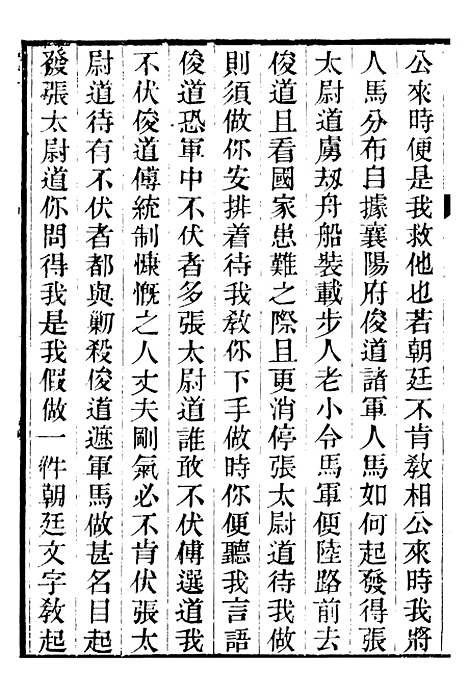 公來時便是我救他也若朝廷不肯敎相公來時我將
人馬分布自據襄陽府俊道諸軍人馬如何起發得張
太尉道虜刼舟船裝載步人老小令馬軍便陸路前去
俊道且看國家患難之際且更消停張太尉道待我做
則須做你安排着待我敎你下手做時你便聽我言語
俊道恐軍中不伏者多張太尉道誰敢不伏傅選道我
不伏俊道傅統制慷慨之人丈夫剛氣必不肯伏張太
尉道待有不伏者都與勦殺俊道遞軍馬做甚名目起
發張太尉道你問得我是我假做一件朝廷文字敎起